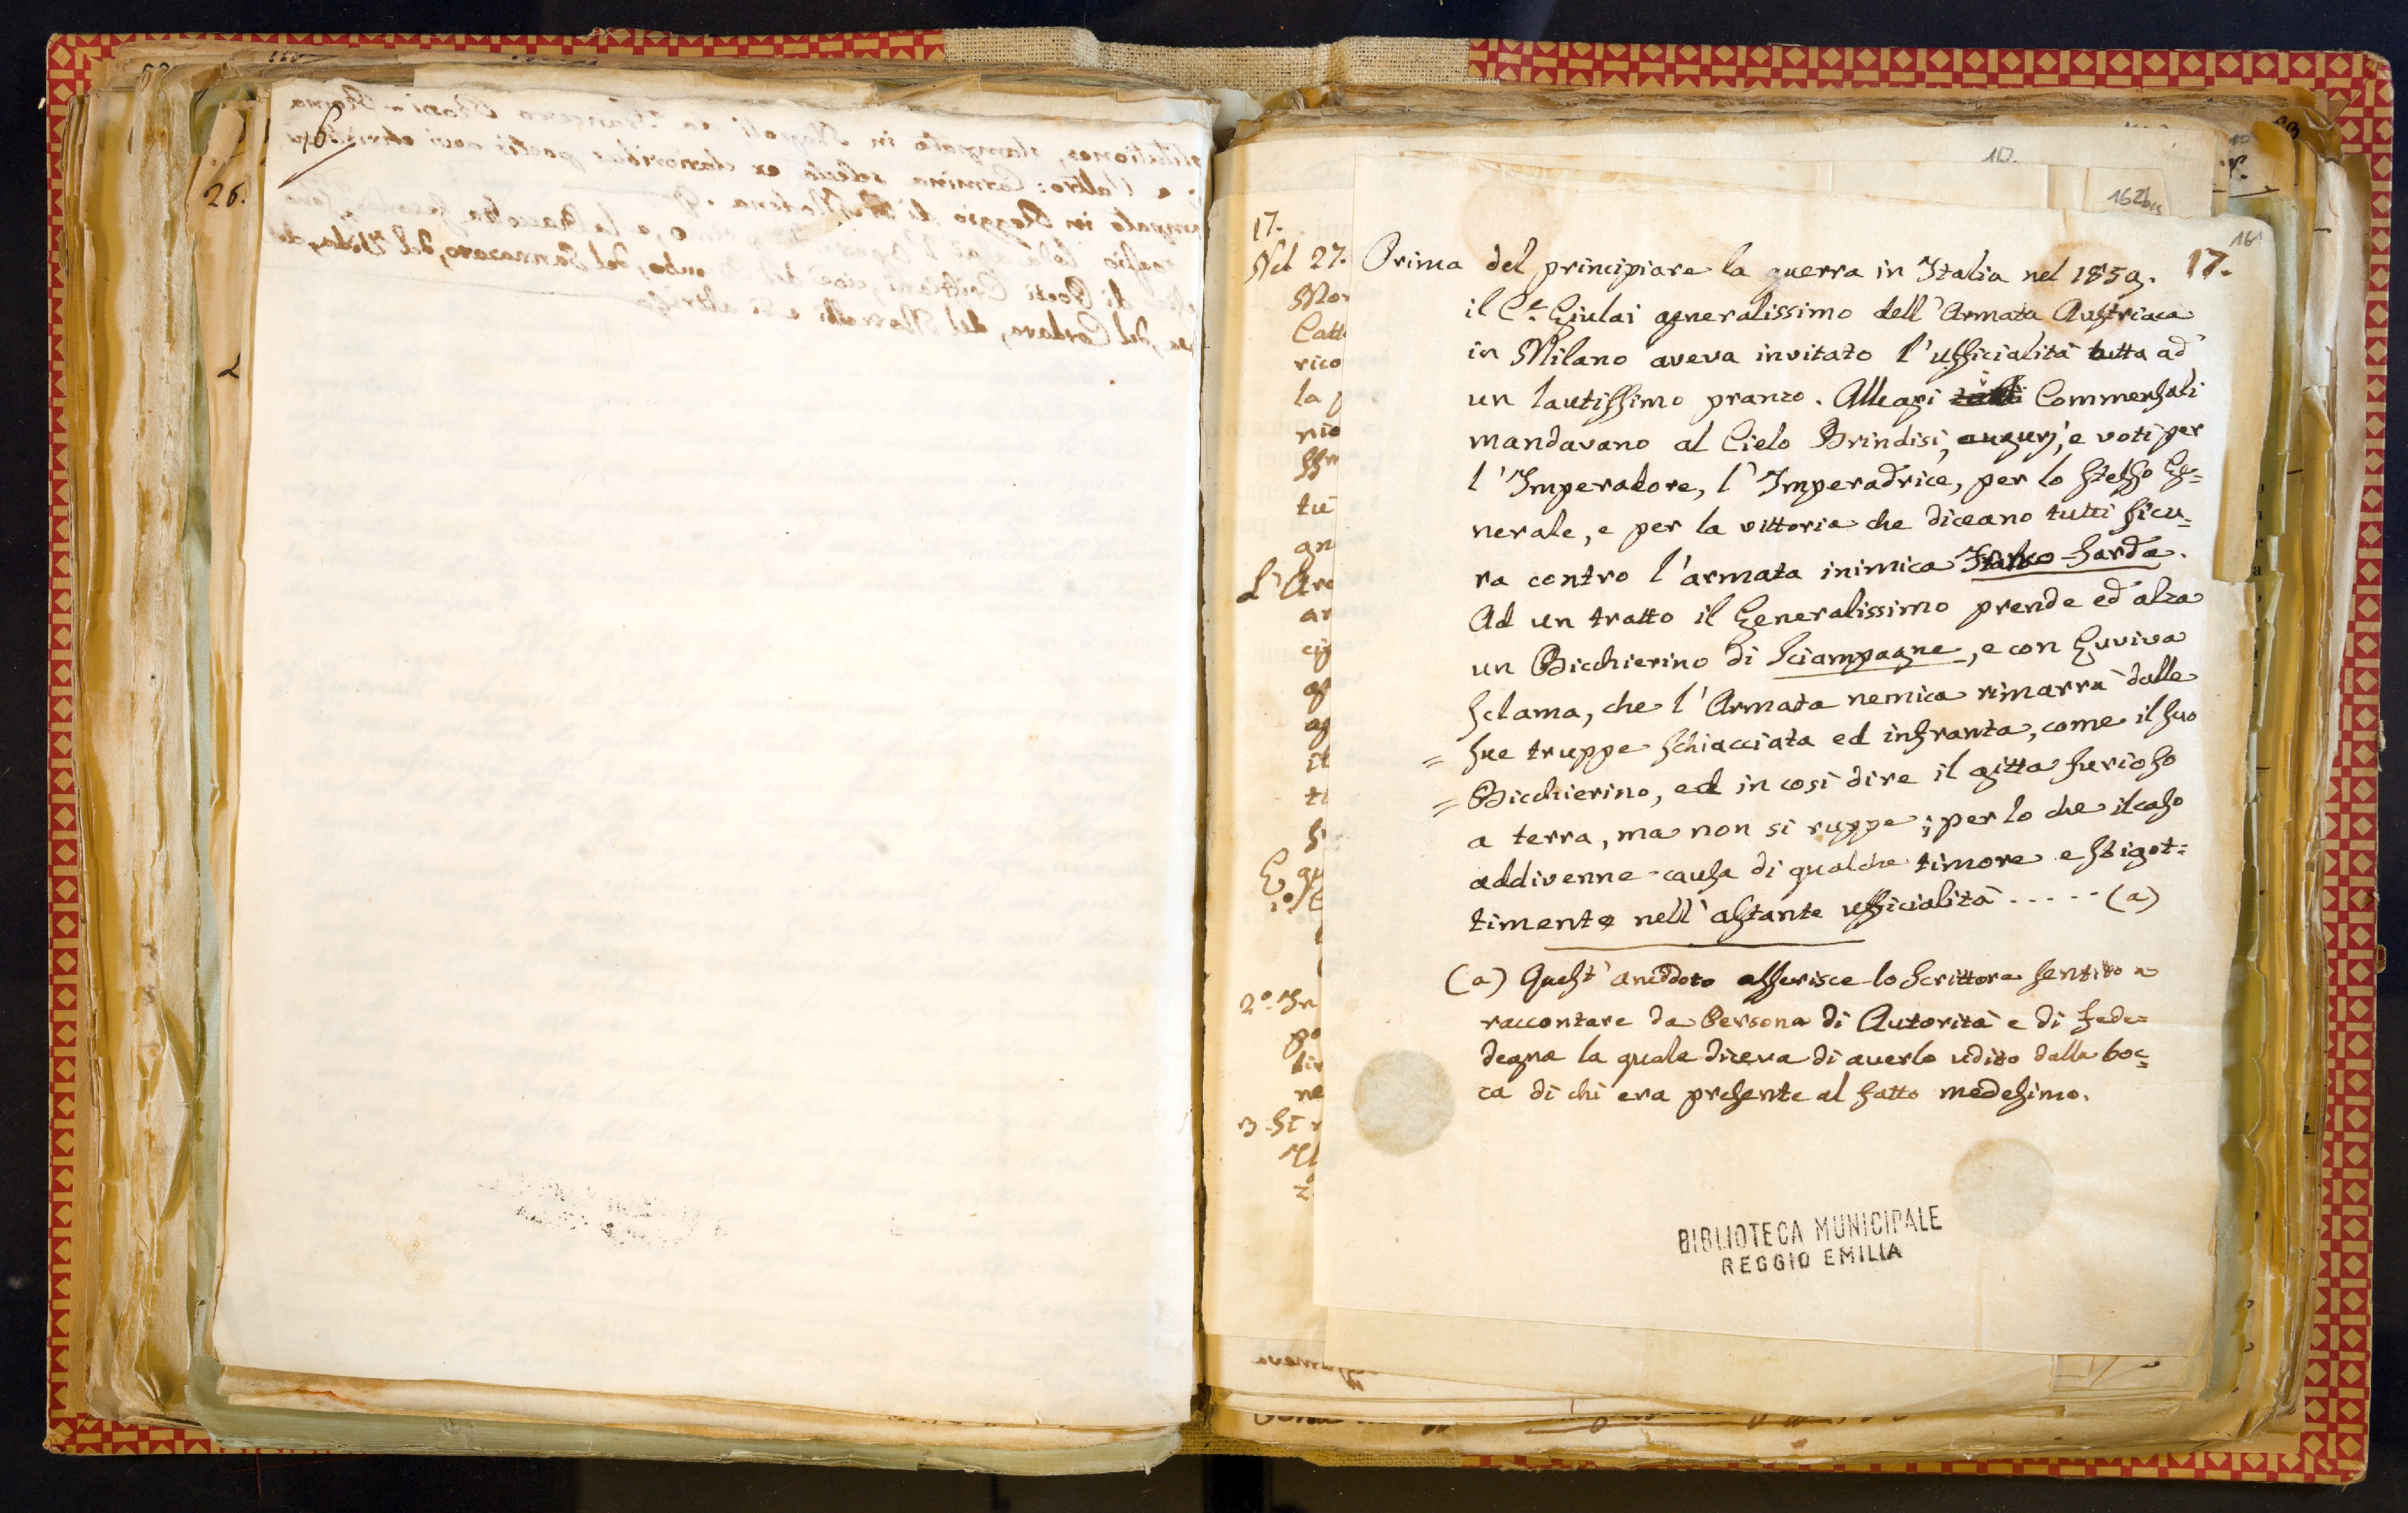 16
26.
17.
Nel 27.
Mor
Catt
rico
la
nio
tu
gn
L'Arc
ar
cip
ag
il
ti
E qu
2.° In
po
ne
3
Il
17.
162bis
161
17.
Prima del principiare la guerra in Italia nel 1859.
il C.e Giulai generalissimo dell'Armata Austriaca
in Milano aveva invitato l'ufficialità tutta ad
un lautissimo pranzo. Allegri i Commensali
mandavano al Cielo Brindisi, augurj, e voti per
l'Imperadore, l'Imperadrice, per lo stesso Ge=
nerale, e per la vittoria che diceano tutti sicu=
ra contro l'armata inimica Italico-Sarda.
Ad un tratto il Generalissimo prende ed alza
un Bicchierino di Sciampagne, e con Evviva
sclama, che l'Armata nemica rimarrà dalle
= sue truppe schiacciata ed infranta, come il suo
= Bicchierino, ed in così dire il gitta furioso
a terra, ma non si ruppe; per lo che il caso
addivenne causa di qualche timore e sbigot=
timento nell'astante ufficialità ..... (a)
(a) Quest'aneddoto asserisce lo Scrittore sentito a
raccontare da Persona di Autorità e di fede=
degna la quale diceva di averlo udito dalla boc=
ca di chi era presente al fatto medesimo.
BIBLIOTECA MUNICIPALE
REGGIO EMILIA